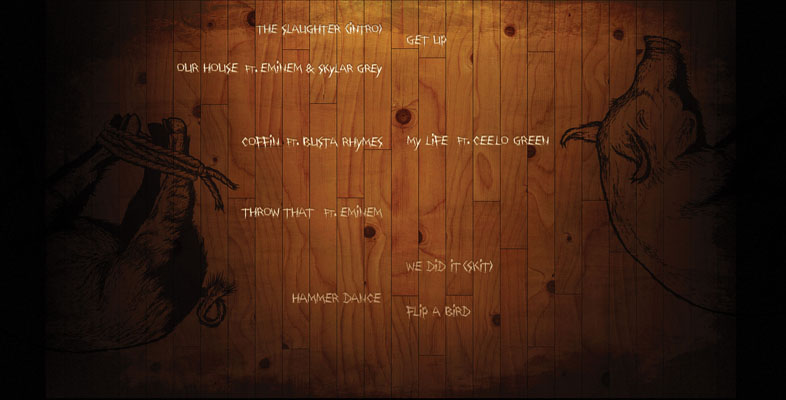 THE SLAUGHTER (INTRO)
GET UP
OUR HOUSE FT. EMINEM & SKYLAR GREY
COFFIN FT. BUSTA RHYMES
MY LIFE FT. CEELO GREEN
THROW THAT FT. EMINEM
WE DID IT (SKIT)
HAMMER DANCE
FLIP A BIRD